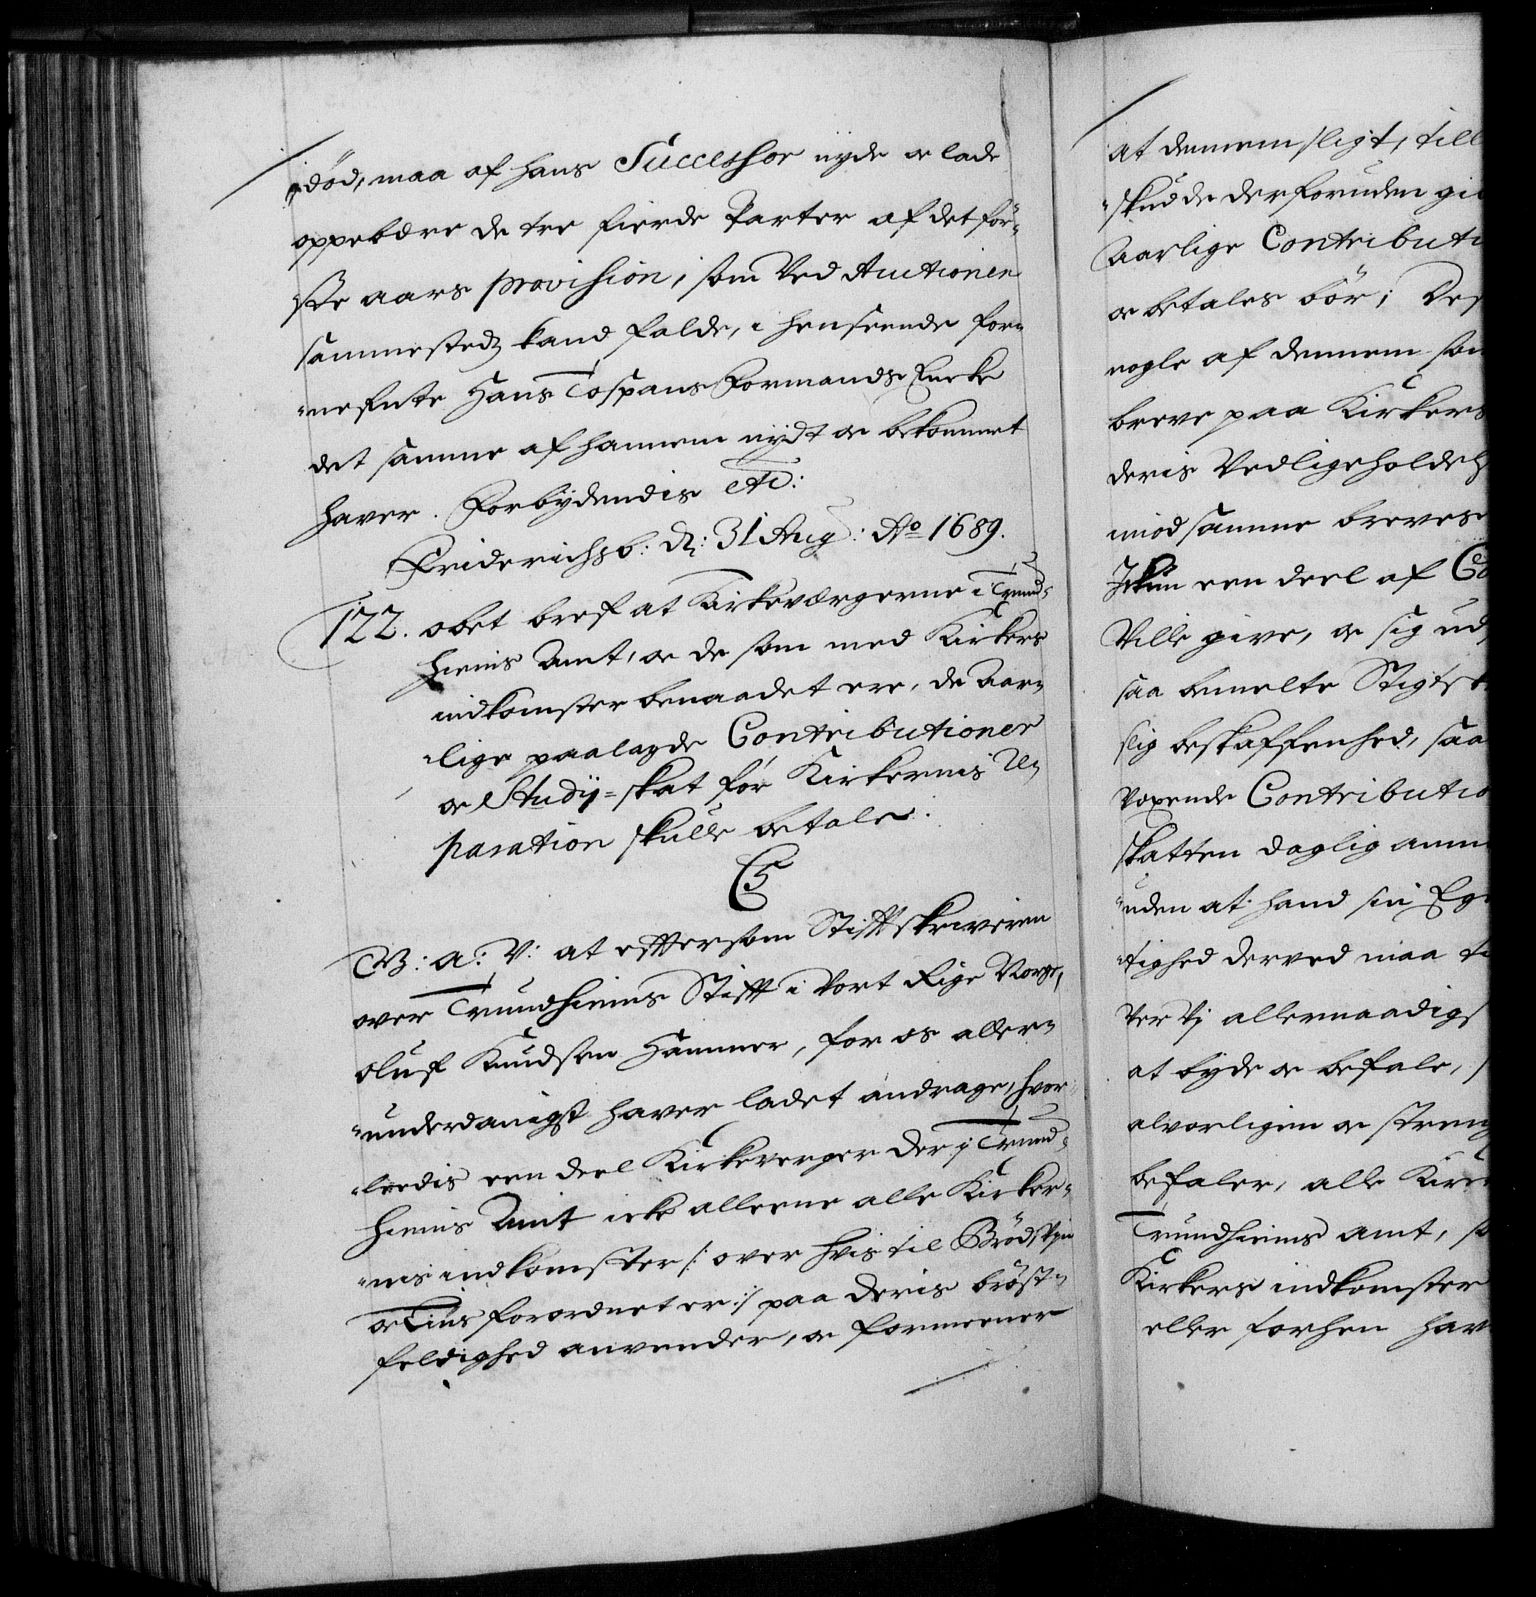 död, maa af hans Successor nyde oc lade
oppebære de tre fierde Parter af det för¬
ste aars provision, som Ved Auctionen
sammestedz kand falde, i henseende for¬
nefnte Hans Tospans Formands Encke
det samme af hannem nydt oc bekommet
haver. Forbydendis etc:
Friderichsb: d: 31 Aug: Ao 1689.
122. obet bref at Kirkeværgerne i Trund¬
hiems Amt, oc de som med Kirkers
indkomster benaadet ere, de Aar¬
lige paalagde Contributioner
oc Studij-skat for Kirkernis Re¬
paration skulle betale.
C5
G: a: V: at eftersom Stiftskriveren
over Trundhiems Stift i Vort Rige Norge,
Oluf Knudsen Hammer, for os aller¬
underdanigst haver ladet andrage, hvor¬
ledis een deel Kirkeverger der i Trund¬
hiems Amt icke alleene alle Kirker¬
nis indkomster /: over hvis til Brød, Vjn
oc Lius forordnet er :/ paa deris bröst¬
feldighed anvender, oc formeener
at dennem sligt, till
skudde derforuden gi
Aarlige Contributi
oc betales bör; Des
nogle af dennem som
breve paa Kirkers
deris Vedligeholdels
imod samme breves
Ickun een deel af Co
Ville give, oc sig ud
saa bemelte Stigtsk
slig beskaffenhed, saa
voxende Contributio
skatten daglig anm
uden at hand sin Eg
tighed derved maa
ver Vj allernaadigs
at byde oc befale,
alvorligen oc streng
befaler, alle Kirc
Trundhiems amt, s
Kirkers indkomster
eller forhen hav